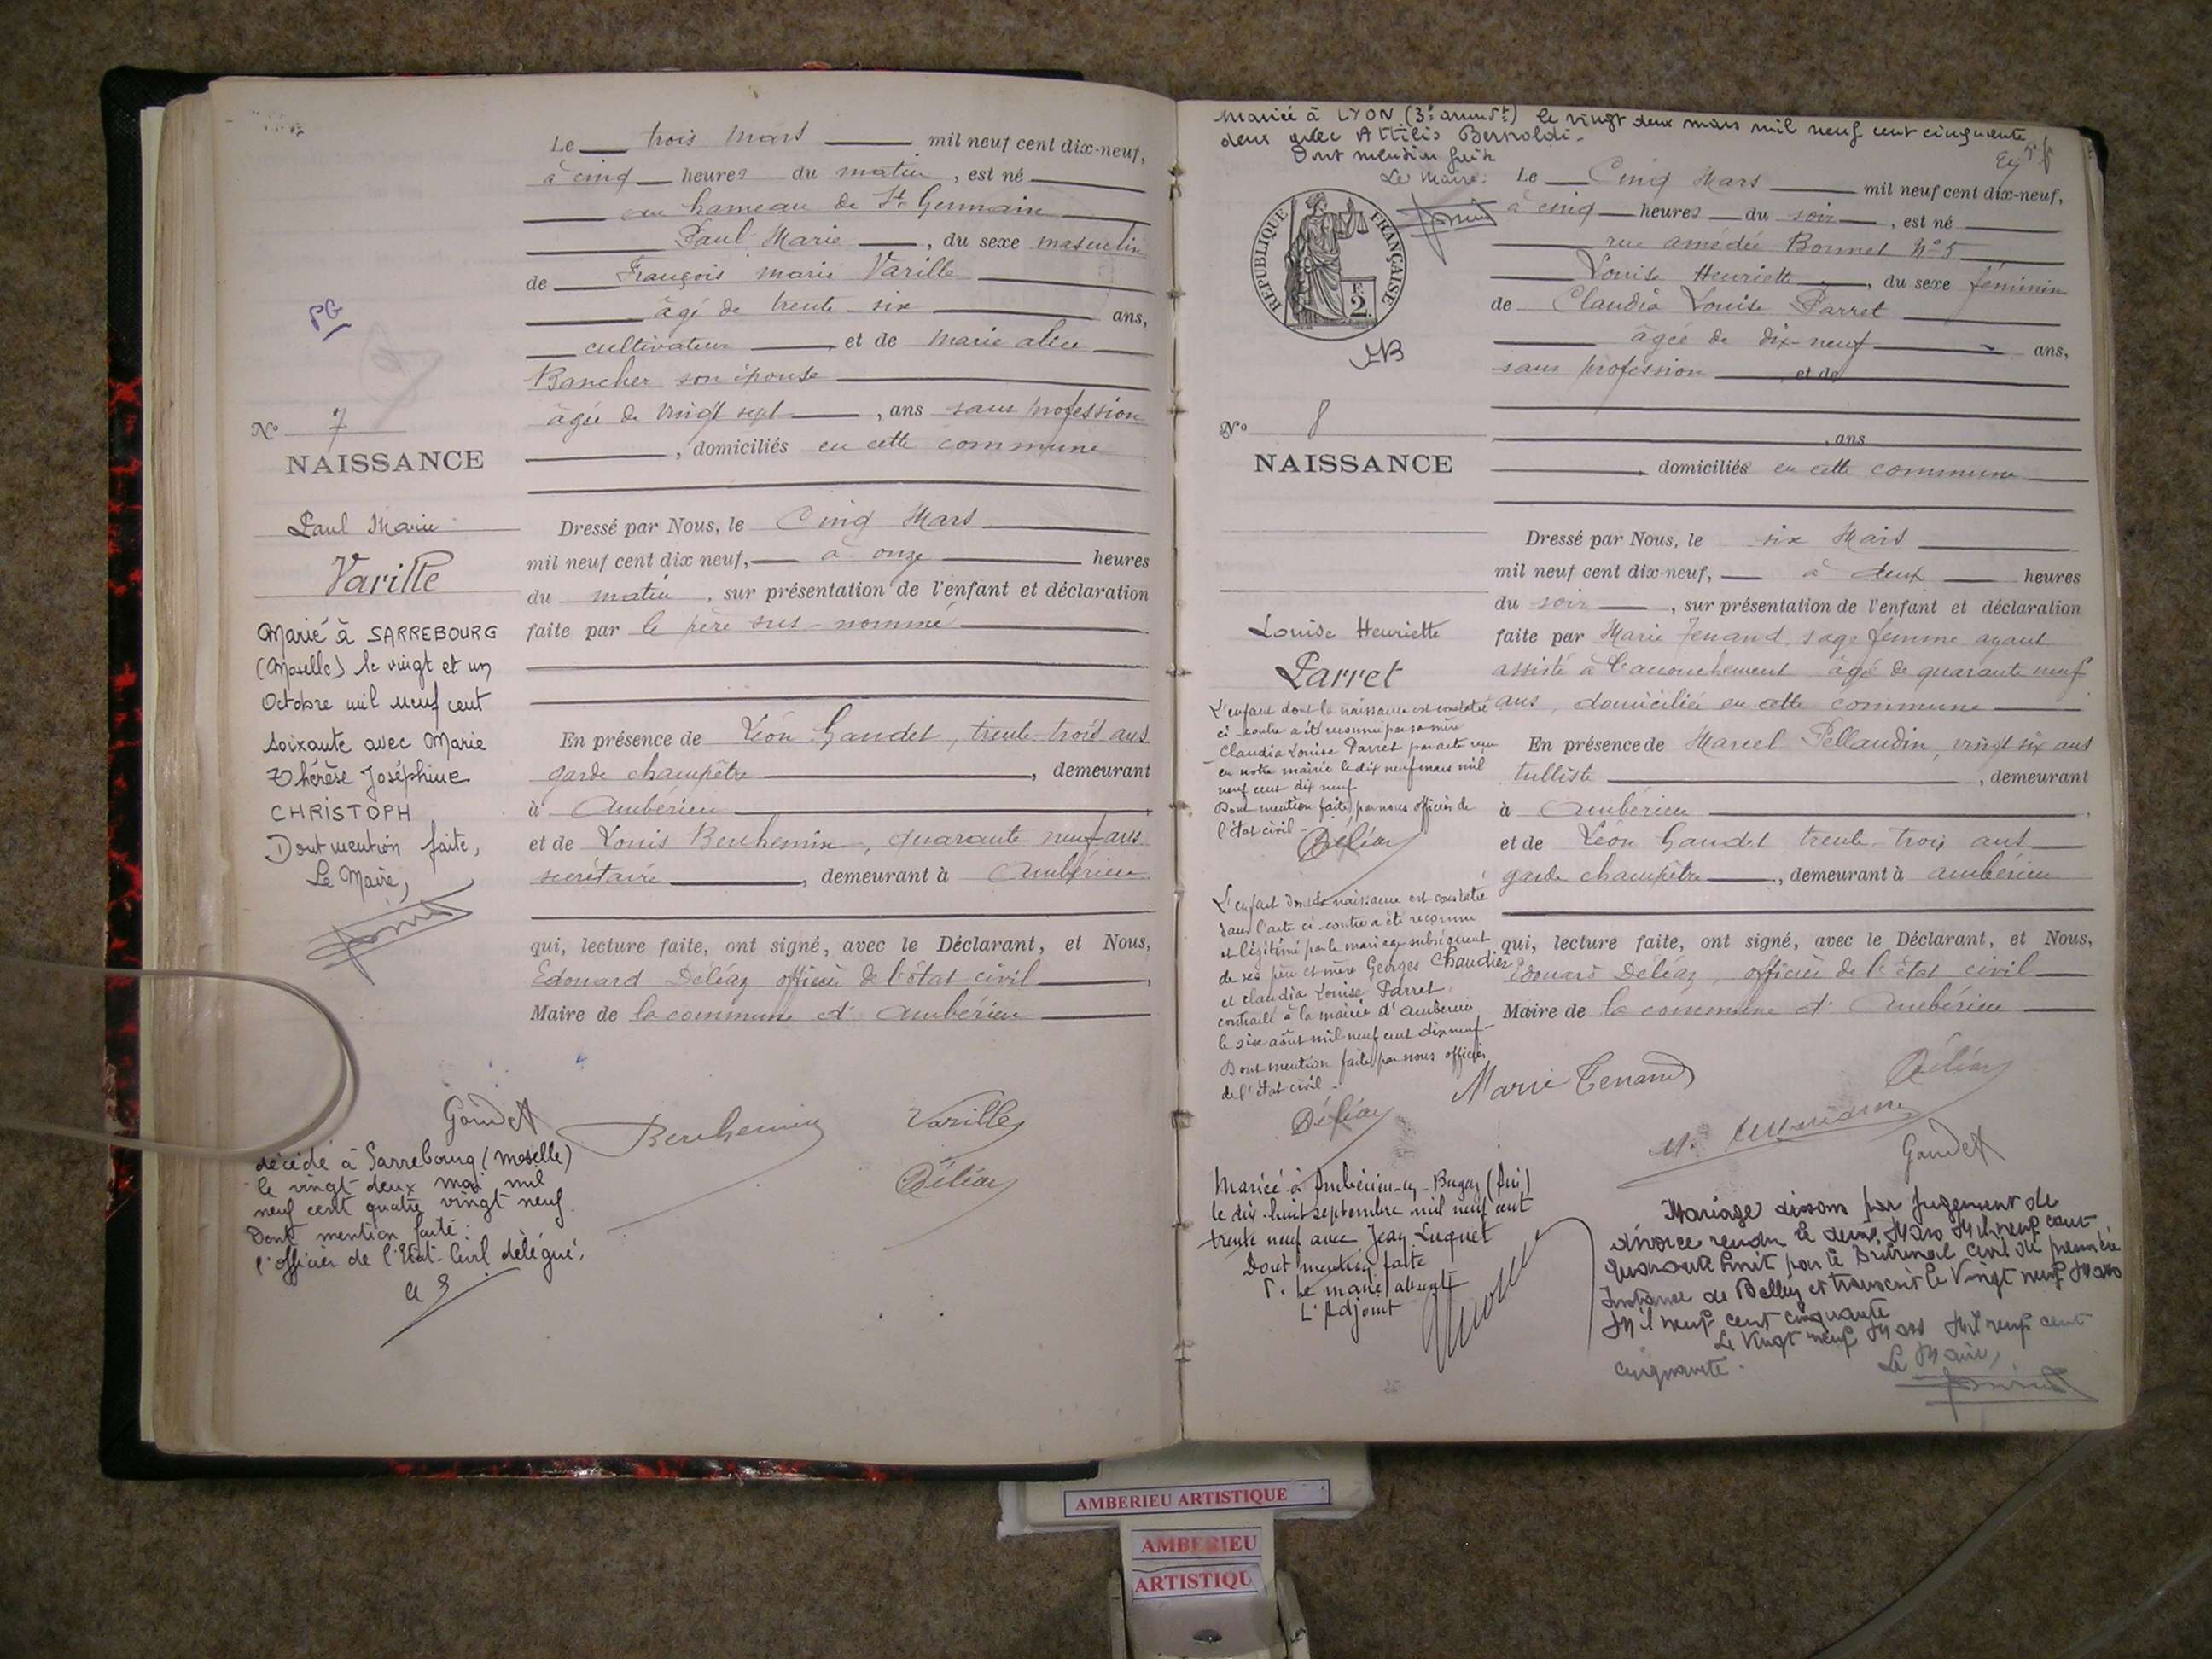 Le trois Mars mil neuf cent dix-neuf,
à cinq heures du matin, est né
au hameau de St Germain
Paul Marie, du sexe masculin
de François marie Varille
âgé de trente six ans,
cultivateur et de marie alice
Rancher son épouse
âgée de vingt sept, ans sans profession
, domiciliés en cette commune
PG
No 7
NAISSANCE
Paul Marie
Varille
Dressé par Nous, le Cinq Mars
mil neuf cent dix neuf, à onze heures
du matin, sur présentation de l'enfant et déclaration
faite par le père sus-nommé
Marié à SARREBOURG
(Moselle) le vingt et un
Octobre mil neuf cent
soixante avec Marie
Thérèse Joséphine
CHRISTOPH
Dont mention faite,
Le Maire,
En présence de Léon Gaudet, trente-trois ans
garde champêtre, demeurant
à Ambérieu
et de Louis Berchemin, quarante neuf ans
secrétaire, demeurant à Ambérieu
qui, lecture faite, ont signé, avec le Déclarant, et Nous,
Edouard Deléaz officier de l'état civil,
Maire de la commune d'Ambérieu
Gaudet
Berchemin
Varille
Déléaz
décédé à Sarrebourg (moselle)
le vingt-deux mai mil
neuf cent quatre vingt neuf.
Dont mention faite.
l'officier de l'Etat-Civil délégué,
Mariée à LYON (3e arrondt) le vingt deux mars mil neuf cent cinquante
deux avec Attilio Bernoldi.
Dont mention faite
Le Maire.
Le Cinq Mars mil neuf cent dix-neuf,
à cinq heures du soir, est né
rue amédée Bonnet No 5
Louise Henriette, du sexe féminin
de Claudia Louise Parret
âgée de dix-neuf ans,
sans profession, et de
, ans
, domiciliés en cette commune
RÉPUBLIQUE FRANÇAISE
2
No 8
NAISSANCE
Louise Henriette
Parret
Dressé par Nous, le six Mars
mil neuf cent dix-neuf, à deux heures
du soir, sur présentation de l'enfant et déclaration
faite par Marie Tenand sage femme ayant
assisté à l'accouchement âgé de quarante neuf
ans, domiciliée en cette commune
En présence de Marcel Pellaudin, vingt six ans
tulliste, demeurant
à Ambérieu,
et de Léon Gaudet trente-trois ans
garde champêtre, demeurant à ambérieu
qui, lecture faite, ont signé, avec le Déclarant, et Nous,
Edouard Deléaz, officier de l'état civil
Maire de la commune d'Ambérieu
L'enfant dont la naissance est constatée
ci-contre a été reconnu par sa mère
Claudia Louise Parret par acte reçu
en notre mairie le dix neuf mars mil
neuf cent dix neuf
Dont mention faite par nous officier de
l'état civil
Déléaz
L'enfant dont la naissance est constatée
dans l'acte ci-contre a été reconnu
et légitimé par le mariage subséquent
de ses père et mère Georges Chaudier
et Claudia Louise Parret,
contracté à la mairie d'Ambérieu
le six août mil neuf cent dix neuf
Dont mention faite par nous officier
de l'état civil
Déléaz
Marie Tenand
Déléaz
Gaudet
Mariée à Ambérieu-en-Bugey (Ain)
le dix-huit septembre mil neuf cent
trente neuf avec Jean Luquet
Dont mention faite
P. Le maire absent
L'Adjoint
Mariage dissous par Jugement de
divorce rendu le deux Mars Mil neuf cent
quarante huit par le Tribunal Civil de première
Instance de Belley et transcrit le Vingt neuf Mars
Mil neuf cent cinquante
Le Vingt neuf Mars Mil neuf cent
cinquante.
Le Maire,
AMBERIEU ARTISTIQUE
AMBERIEU
ARTISTIQU